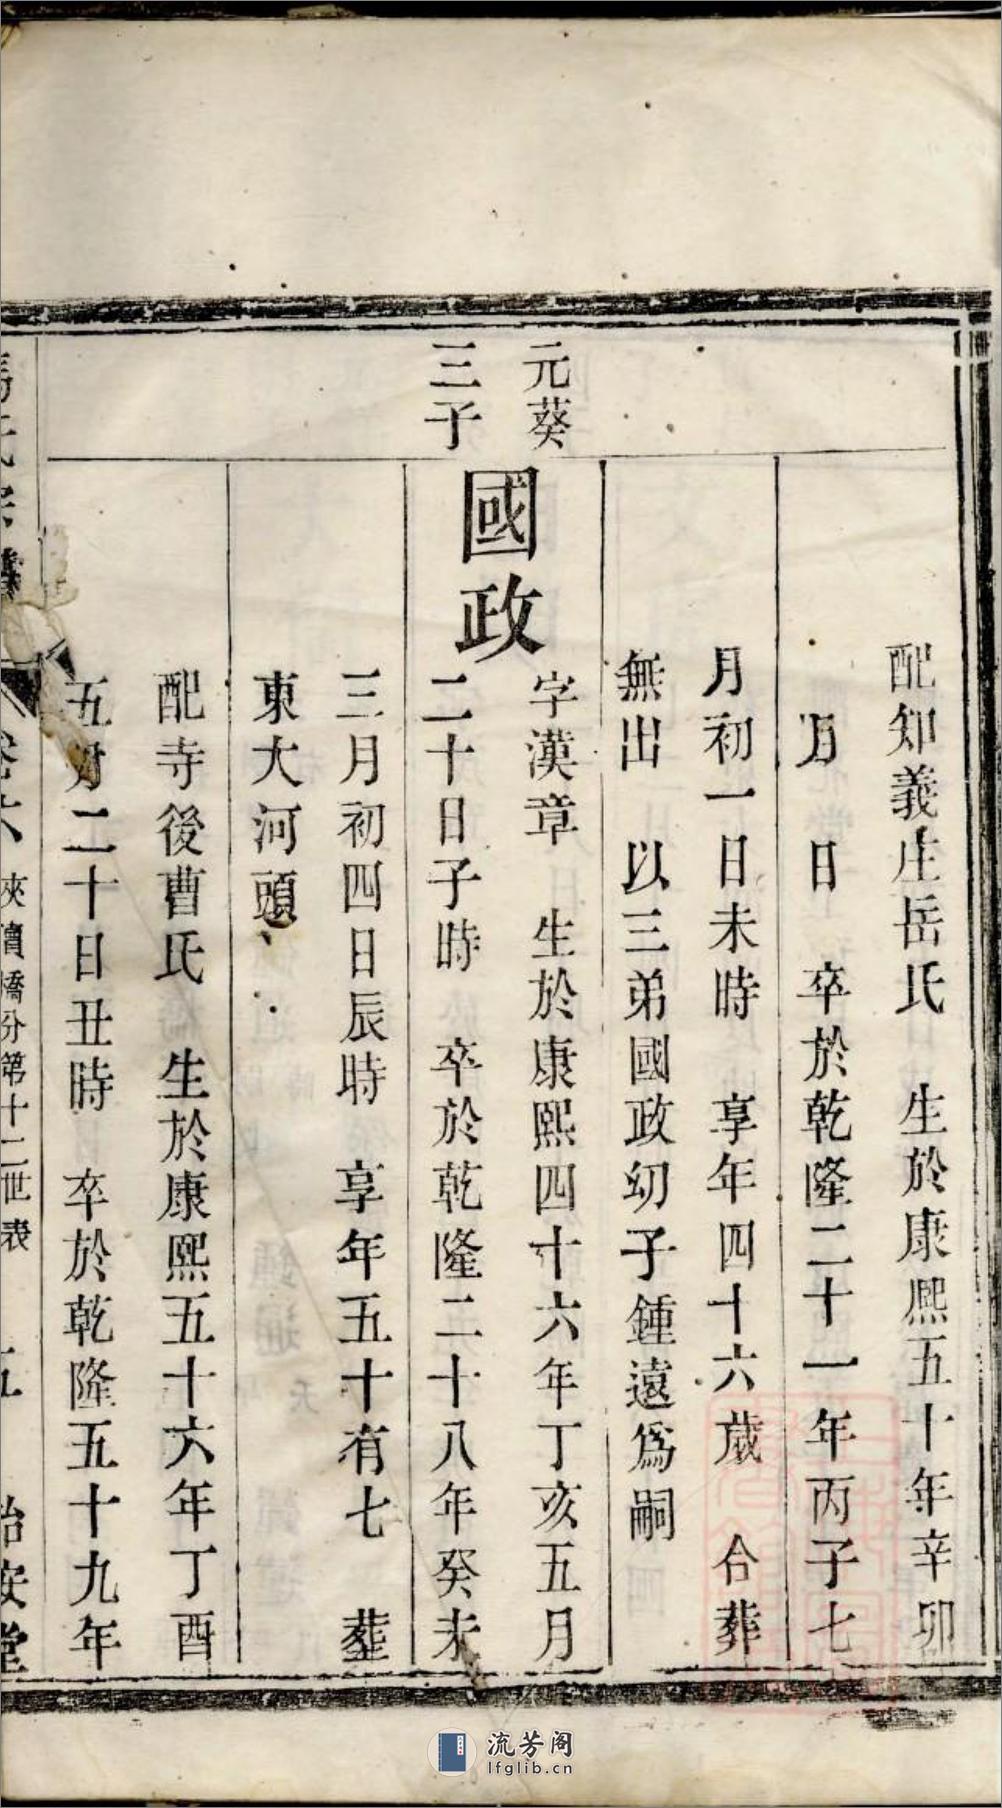 配知義庄岳氏 生於康熈五十年辛卯
月 日 卒於乾隆二十一年丙子七
月初一日未時 享年四十六歲 合葬
無出 以三弟國政幼子鍾遠爲嗣
元葵
三子
國政
字漢章 生於康熙四十六年丁亥五月
二十日子時 卒於乾隆二十八年癸未
三月初四日辰時 享年五十有七 葬
東大河頭
配寺後曹氏 生於康熙五十六年丁酉
五月二十日丑時 卒於乾隆五十九年
卷六 夾漕橋分第十二世表 五 怡安堂
流芳阁
lfglib.cn